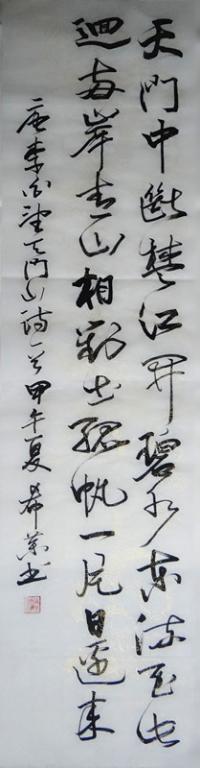 天門中斷楚江開碧水東流至此
迴兩岸青山相對出孤帆一片日邊來
唐李白望天门山詩一首甲午夏希書